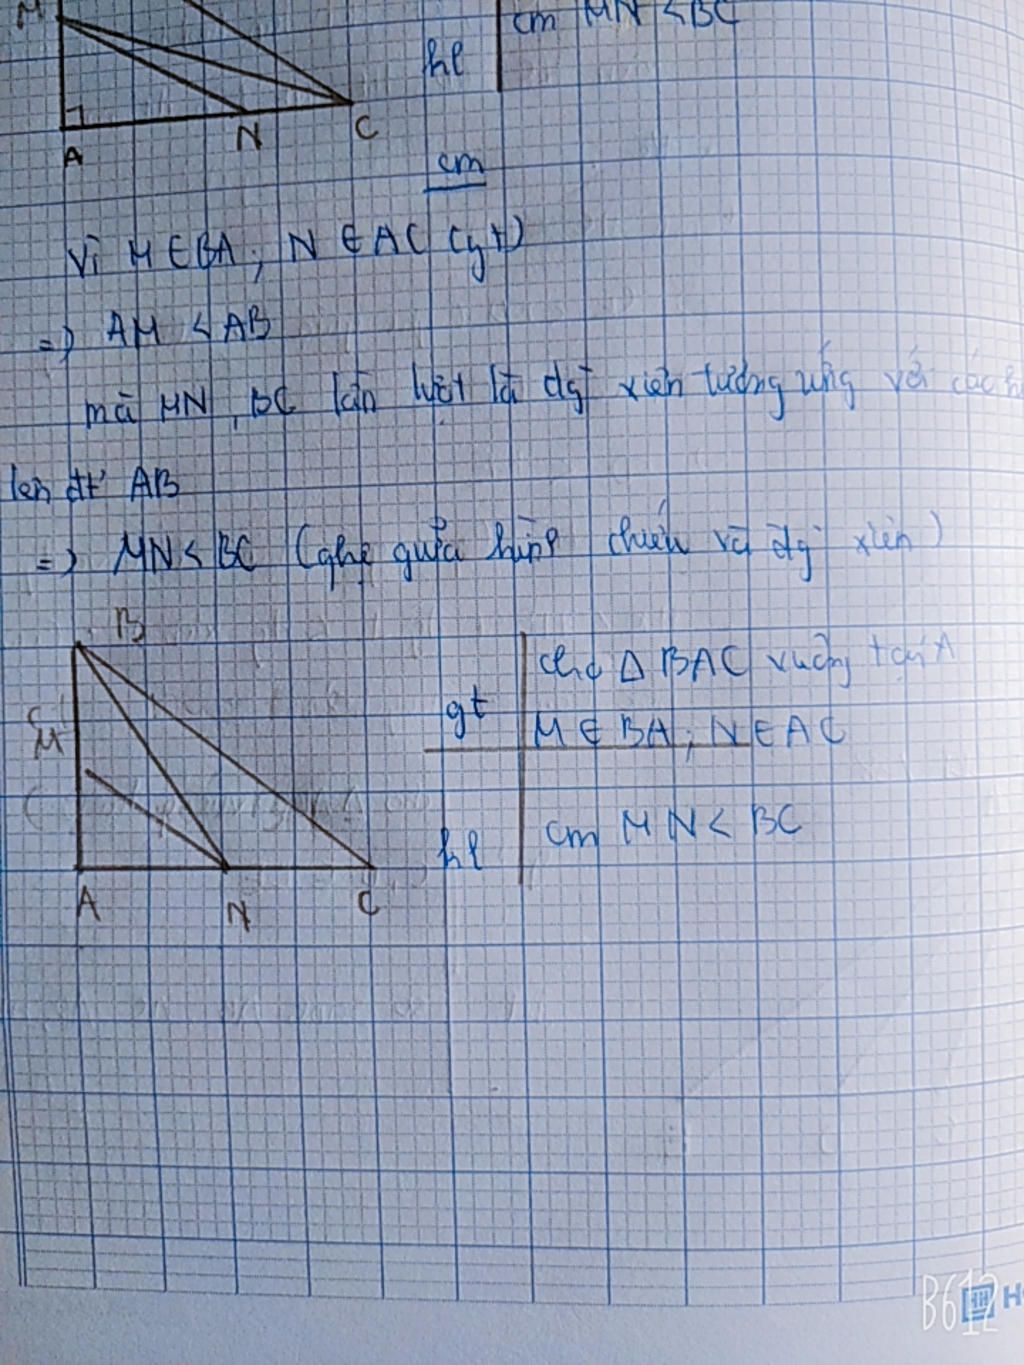 M
cm MN < BC
hl
A
N
C
cm
Vì M ∈ BA ; N ∈ AC (gt)
=> AM < AB
mà MN, BC lần lượt là đg xiên tương ứng với các
lên đt' AB
=> MN < BC (qhệ giữa hình chiếu và đg xiên)
B
cho Δ BAC vuông tại A
gt
M
M ∈ BA ; N ∈ AC
cm MN < BC
hl
A
N
C
B612